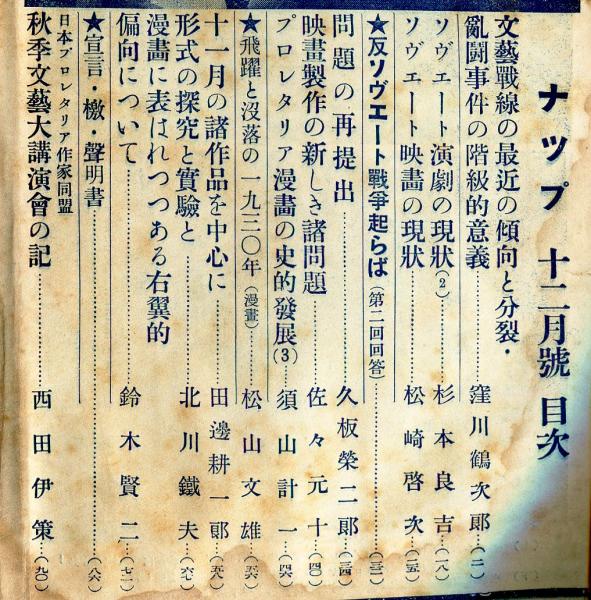 ナップ 十二月號 目次
文藝戰線の最近の傾向と分裂・
亂鬪事件の階級的意義……窪川鶴次郎…(二)
ソヴェート演劇の現狀(2)…杉本良吉…(一八)
ソヴェート映畫の現狀……松崎啓次…(二五)
★反ソヴエート戰爭起らば(第二回回答)……(三一)
問題の再提出……久板榮二郎…(三四)
映畫製作の新しき諸問題……佐々元十…(四〇)
プロレタリア漫畫の史的發展(3)…須山計一…(四六)
★飛躍と沒落の一九三〇年(漫畫)…松山文雄…(五六)
十一月の諸作品を中心に…田邊耕一郎…(五八)
形式の探究と實驗と……北川鐵夫…(六七)
漫畫に表はれつつある右翼的
偏向について……鈴木賢二…(七一)
★宣言・檄・聲明書……(八六)
日本プロレタリア作家同盟
秋季文藝大講演會の記……西田伊策…(九〇)